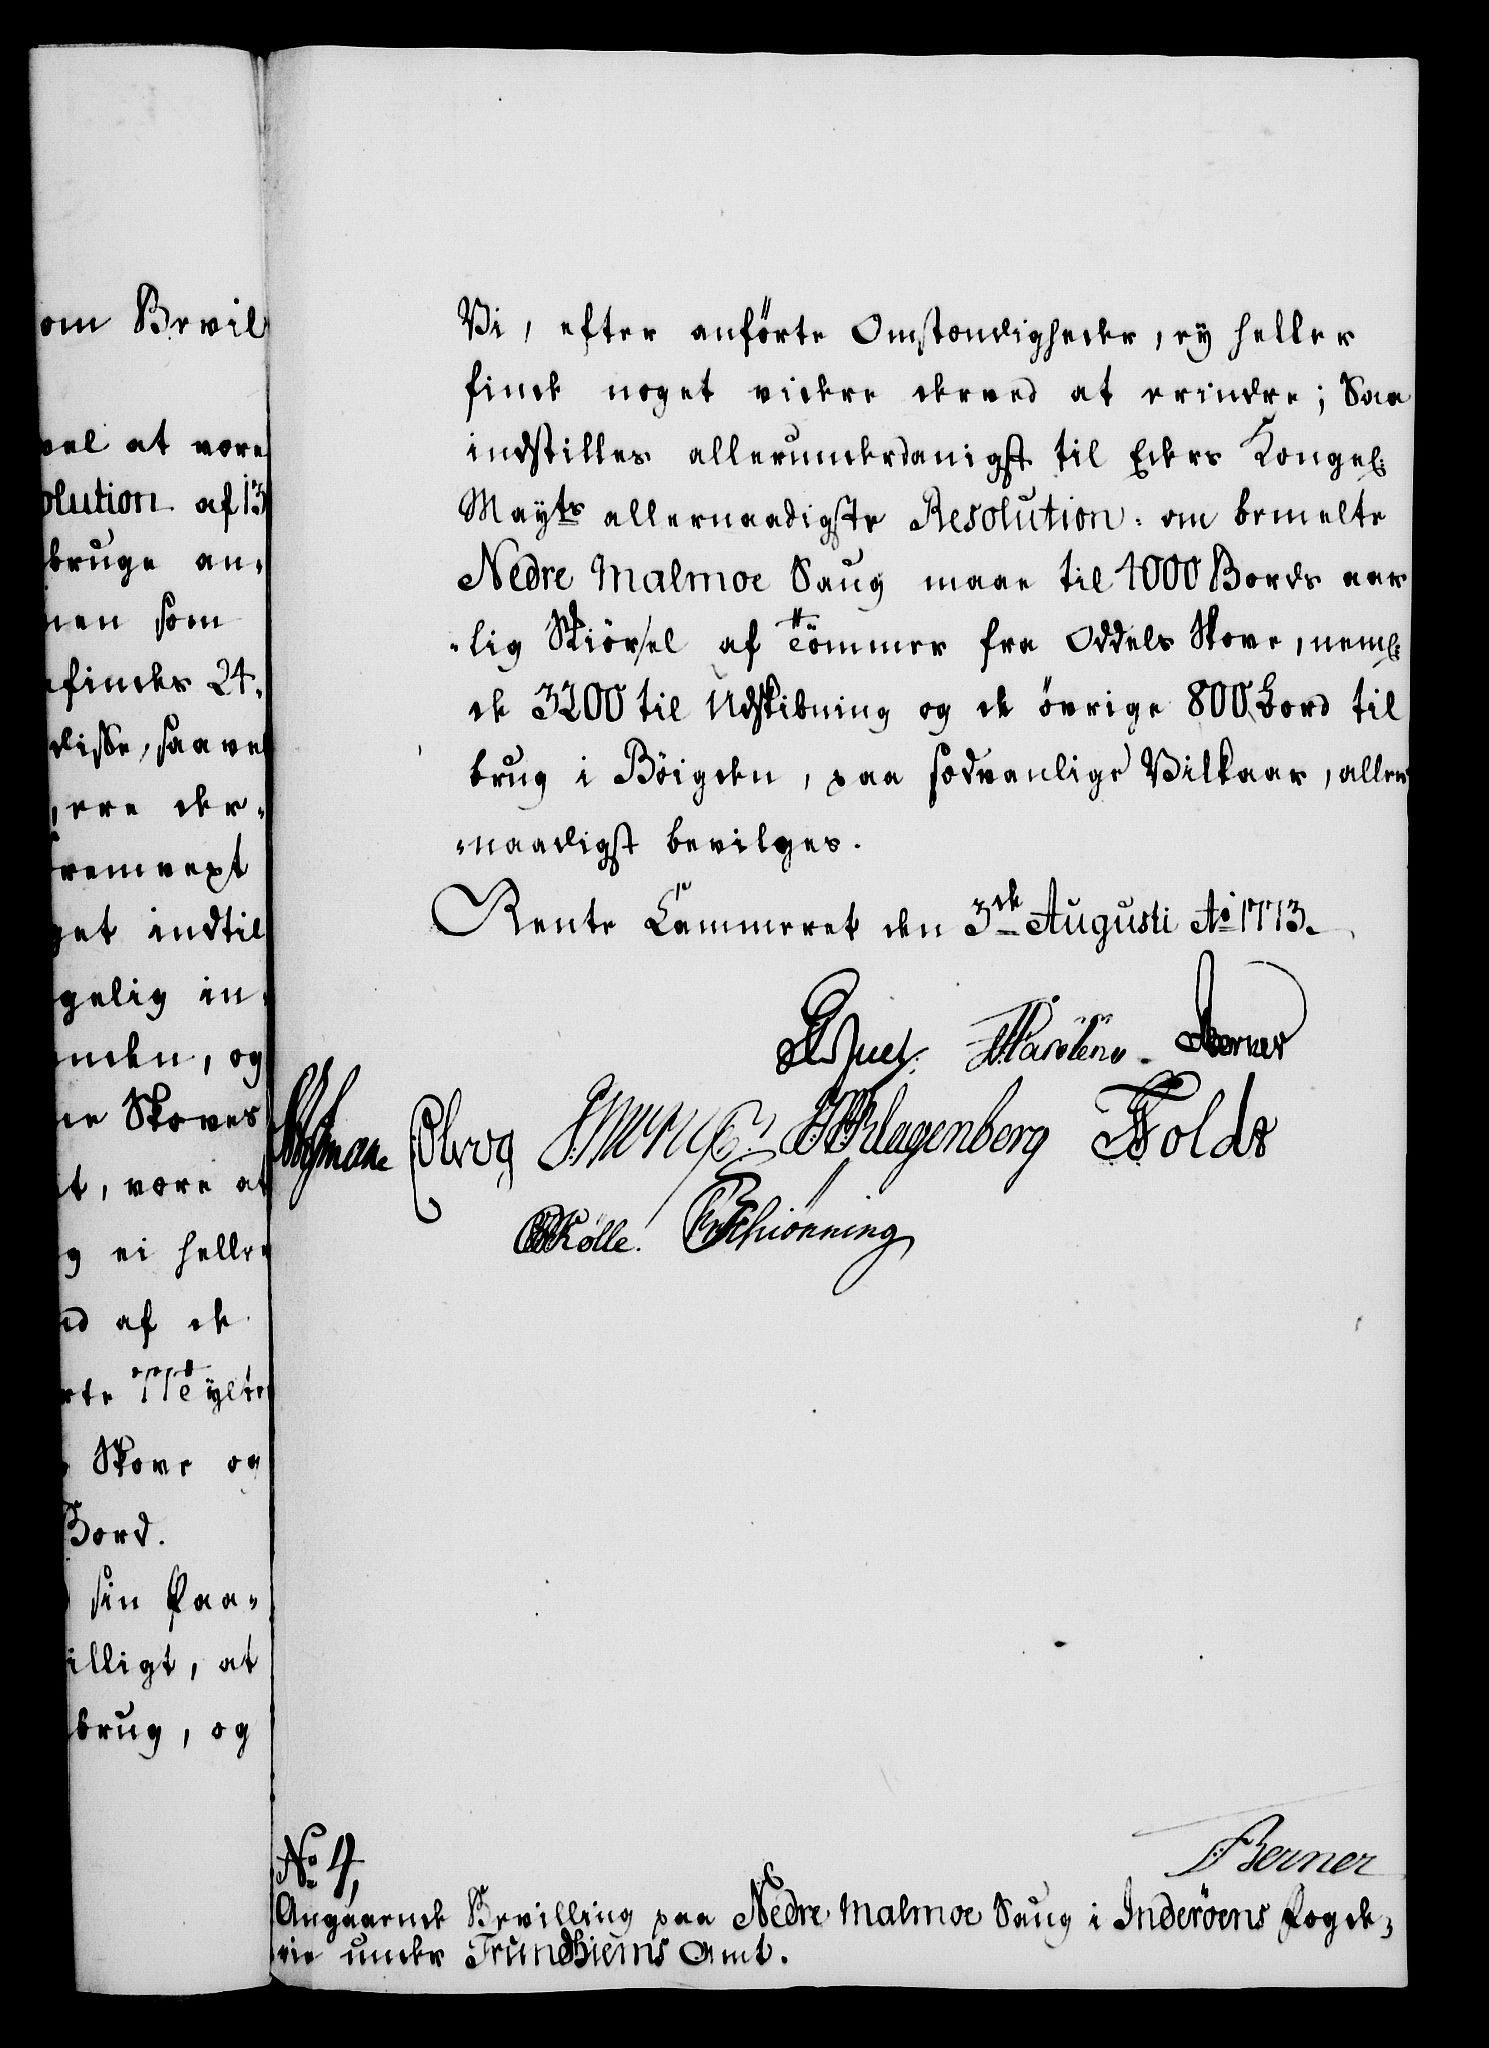 om Bevil
vel at være
olution af 13
bruge an-
men som
efindes 24.
disse, saavel
, ere der-
fremvext
get indtil
gelig in-
nden, og
er Skoves
t, være at
g ei heller
ed af de
rte Meylte
Skove og
Bord.
sin Paa-
illigt, at
brug, og
Vi, efter anførte Omstændigheder, ey heller
finde noget videre derved at erindre; Saa
indstilles allerunderdanigst til Eders Kongel:
Mayts allernaadigste Resolution: om bemelte
Nedre Malmoe Saug maae til 4000 Bords aar-
-lig Skiørsel af Tømmer fra Oddels Skove, neml:
de 3200 til Udskibning og de øvrige 800 Bord til
brug i Bøigden, paa sædvanlige Vilkaar, aller-
-naadigst bevilges.
Rente Cammeret den 3de Augusti Ao 1773.
Juel. Berner
Klagenberg Foldr
Kølle. Schiønning
No 4,
Berner
Angaaende Bevilling paa Nedre Malmoe Saug i Inderøens Fogde-
rie under Trundhiems Amt.